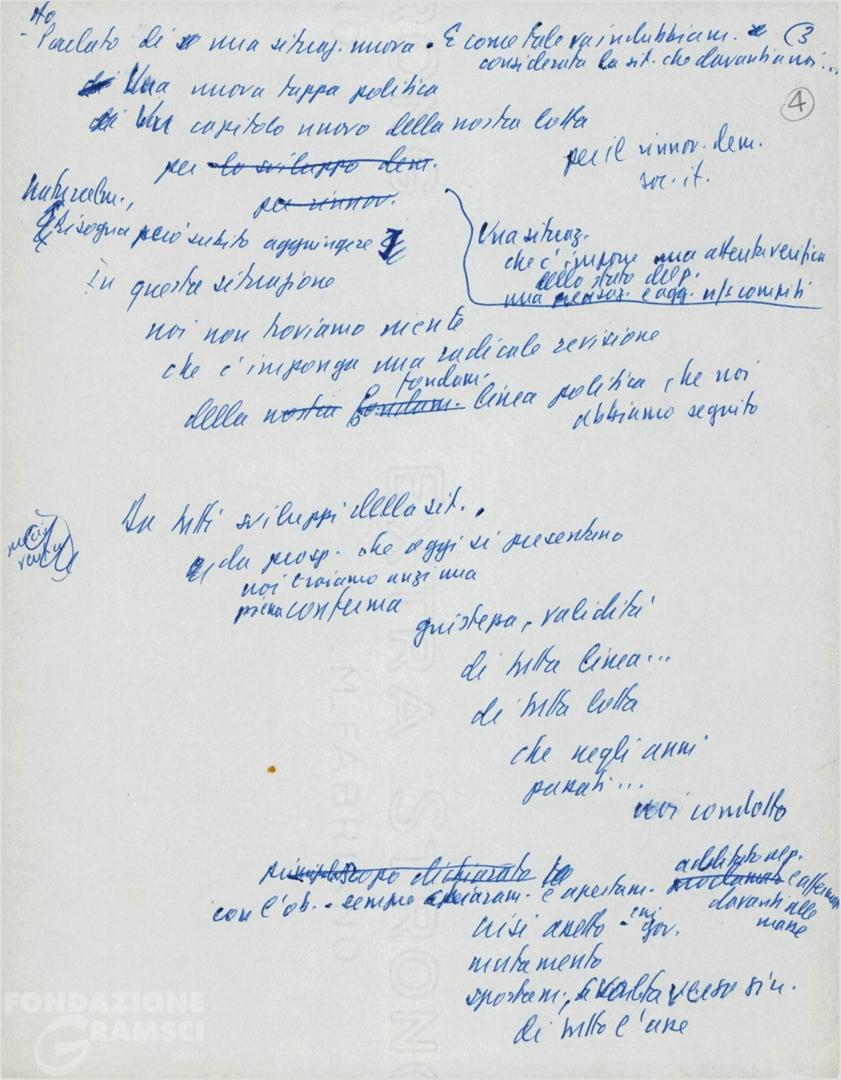 Ho
- Parlato di una situaz. nuova. E come tale va indubbiam. (3
considerata la sit. che davanti a noi...
4
di Una nuova tappa politica
di Un capitolo nuovo della nostra lotta
per lo sviluppo dem. per il rinnov. dem.
soc. it.
per rinnov.
Naturalm.,
Bisogna però subito aggiungere
Una situaz.
che c'impone una attenta verifica
dello stato del p.
una e agg. ns compiti
In questa situazione
noi non troviamo niente
che c'imponga una radicale revisione
fondam.
della nostra fondam. linea politica, che noi
abbiamo seguito
Da tutti sviluppi della sit.,
da prosp. che oggi si presentano
noi troviamo anzi una
piena conferma
giustezza, validità
di tutta linea...
di tutta lotta
che negli anni
passati...
noi condotto
scopo dichiarato
additato
con l'ob. - sempre chiaram. e apertam. proclamato e
davanti alle
masse
crisi assetto - gov.
mutamento
spostam., svolta verso sin.
di tutto l'asse
EXTRA STRONG
M. FABRIANO
FONDAZIONE
GRAMSCI